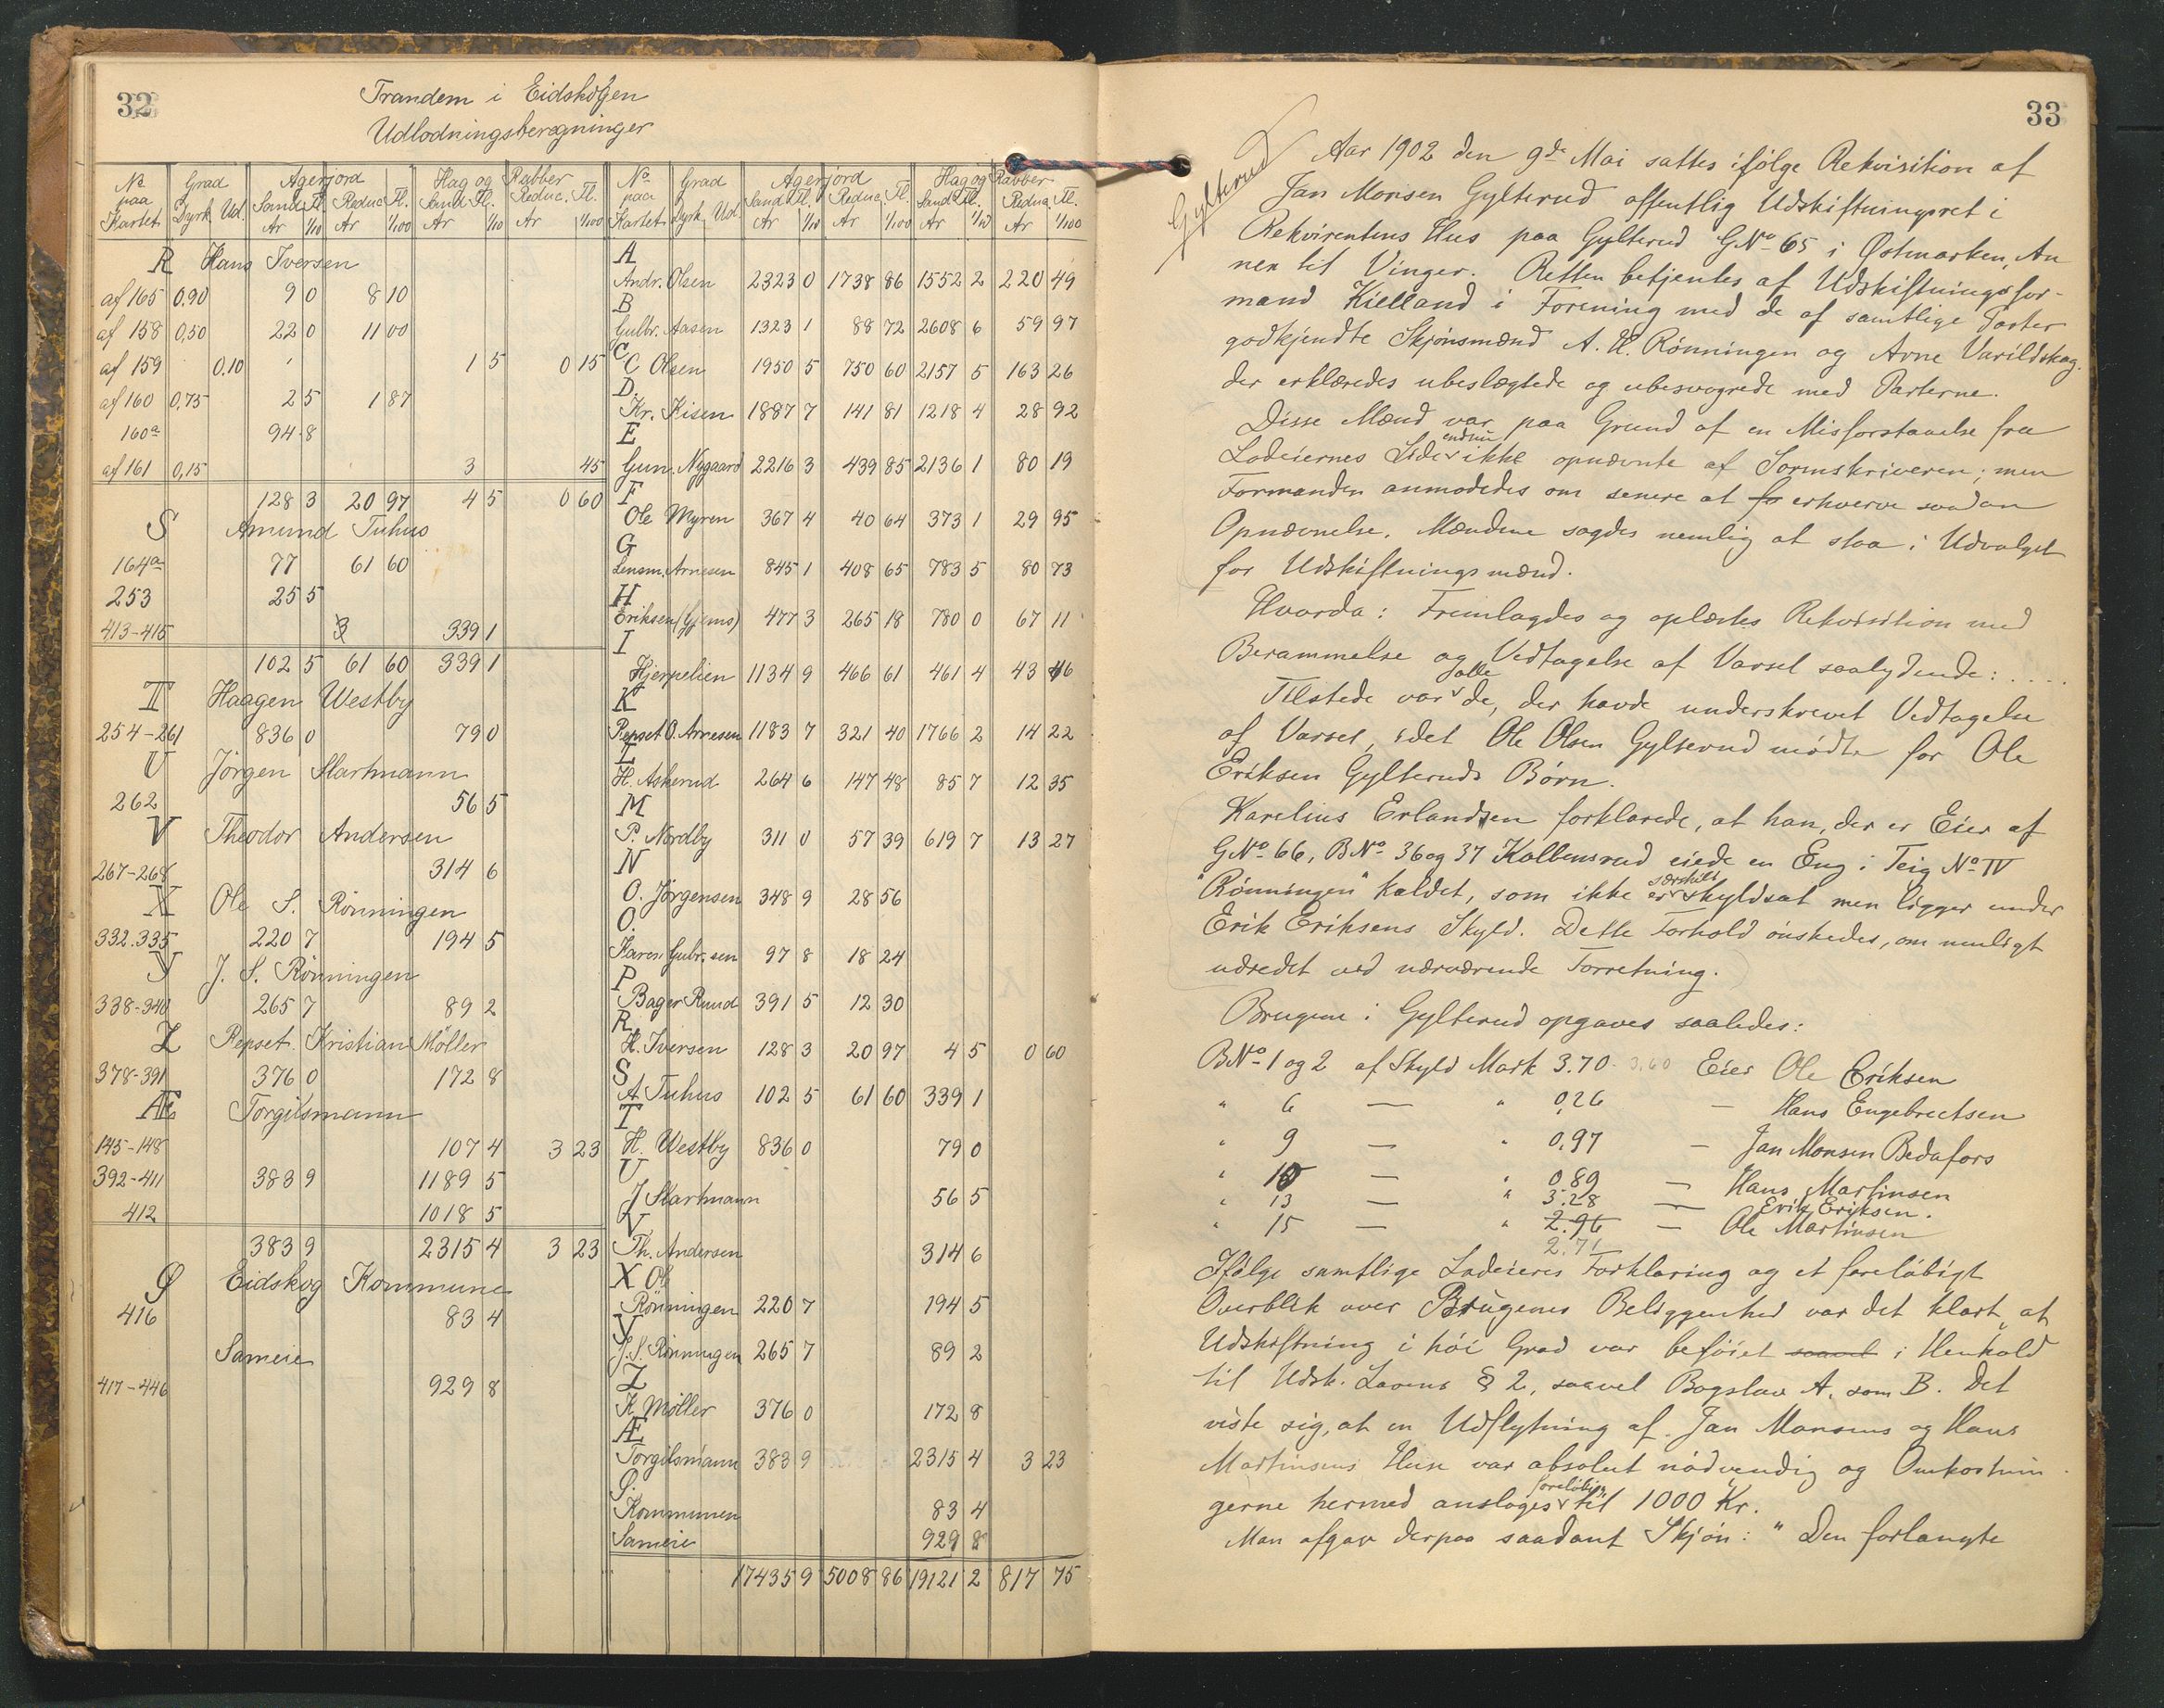 32
Trandem i Eidskogen
Udlodningsberegninger
No paa Kartet | Grad Dyrk Ud. | Agerjord Sand Fl. Ar 1/10 | Reduc. Fl. Ar 1/100 | Hag og Rabber Sand Fl. Ar 1/10 | Reduc. Fl. Ar 1/100
R Hans Iversen
af 165 0,90 9 0 8 10
af 158 0,50 22 0 11 00
af 159 0.10 1 5 0 15
af 160 0,75 2 5 1 87
160a 94 8
af 161 0,15 3 45
128 3 20 97 4 5 0 60
S Amund Tuhus
164a 77 61 60
253 25 5
413-415 339 1
102 5 61 60 339 1
T Haagen Westby
254-261 836 0 79 0
U Jörgen Hartmann
262 56 5
V Theodor Andersen
267-268 314 6
X Ole S. Rönningen
332.335 220 7 194 5
Y J. S. Rönningen
338-340 265 7 89 2
Z Repset. Kristian Möller
378-391 376 0 172 8
Æ Torgilsmann
145-148 107 4 3 23
392-411 383 9 1189 5
412 1018 5
383 9 2315 4 3 23
Ø Eidskog Kommune
416 83 4
Sameie
417-446 929 8
No paa Kartet | Grad Dyrk Ud. | Agerjord Sand Fl. Ar 1/10 | Reduc. Fl. Ar 1/100 | Hag og Rabber Sand Fl. Ar 1/10 | Reduc. Fl. Ar 1/100
A
Andr. Olsen 2323 0 1738 86 1552 2 220 49
B
Gulbr. Aasen 1323 1 88 72 2608 6 59 97
C
C Olsen 1950 5 750 60 2157 5 163 26
D.
Kr. Kisen 1887 7 141 81 1218 4 28 92
E
Gun. Nygaard 2216 3 439 85 2136 1 80 19
F
Ole Myren 367 4 40 64 373 1 29 95
G
Lensm. Arnesen 845 1 408 65 783 5 80 73
H
Eriksen (Gjems) 477 3 265 18 780 0 67 11
I
Hjerpelien 1134 9 466 61 461 4 43 46
K
Repset O. Arnesen 1183 7 321 40 1766 2 14 22
L
H. Askerud 264 6 147 48 85 7 12 35
M
P. Nordby 311 0 57 39 619 7 13 27
N
O. Jörgensen 348 9 28 56
O.
Karen Gubr. sen 97 8 18 24
P
Bager Ruud 391 5 12 30
R
H. Iversen 128 3 20 97 4 5 0 60
S
A Tuhus 102 5 61 60 339 1
T
H. Westby 836 0 79 0
U
J Hartmann 56 5
V
Th. Andersen 314 6
X Ol
Rönningen 220 7 194 5
Y
J. S. Rönningen 265 7 89 2
Z
K Möller 376 0 172 8
Æ
Torgilsmann 383 9 2315 4 3 23
Ø.
Kommunen 83 4
Sameie 929 8
17435 9 5008 86 19121 2 817 75
33
Gylterud
Aar 1902 den 9de Mai sattes ifølge Rekvisition af
Jan Monsen Gylterud offentlig Udskiftningsret i
Rekvirentens Hus paa Gylterud GNo 65 i Østmarken, An
nex til Vinger. Retten betjentes af Udskiftningsfor-
mand Kielland i Forening med de af samtlige Parter
godkjendte Skjønsmænd A. H. Rönningen og Arne Varildskog.
der erklæredes ubeslægtede og ubesvogrede med Parterne.
Disse Mænd var paa Grund af en Misforstaaelse fra
Lodeiernes Side endnu ikke opnævnte af Sorenskriveren; men
Formanden anmodedes om senere at erhverve saadan
Opnævnelse. Mændene sagdes nemlig at staa i Udvalget
for Udskiftningsmænd.
Hvorda: Fremlagdes og oplæstes Rekvisition med
Berammelse og Vedtagelse af Varsel saalydende: ....
Tilstede var alle de, der havde underskrevet Vedtagelse
af Varsel, idet Ole Olsen Gylterud mødte for Ole
Eriksen Gylteruds Børn.
Karelius Erlandsen forklarede, at han, der er Eier af
GNo 66, BNo 36 og 37 Kolbensrud eiede en Eng i Teig No IV
"Rönningen" kaldet, som ikke er særskilt skyldsat men ligger under
Erik Eriksens Skyld. Dette Forhold önskedes, om muligt
udredet ved nærværende Forretning.
Brugene i Gylterud opgaves saaledes:
BNo 1 og 2 af Skyld Mark 3.70 3,60 Eier Ole Eriksen
" 6 — " 0,26 — Hans Engebretsen
" 9 — " 0,97 — Jan Monsen Bedafors
" 10 — " 0,89 — Hans Martinsen
" 13 — " 3.28 — Erik Eriksen.
" 15 — " 2.96 — Ole Martinsen
2.71
Ifölge samtlige Lodeieres Forklaring og et foreløbigt
Overblik over Brugenes Beliggenhed var det klart, at
Udskiftning i höi Grad var beföiet saavel i Henhold
til Udsk. Lovens § 2, saavel Bogstav A. som B. Det
viste sig, at en Udflytning af Jan Monsens og Hans
Martinsens Huse var absolut nödvendig og Omkostnin
gerne hermed ansloges foreløbig til 1000 Kr.
Man afgav derpaa saadant Skjön: " Den forlangte